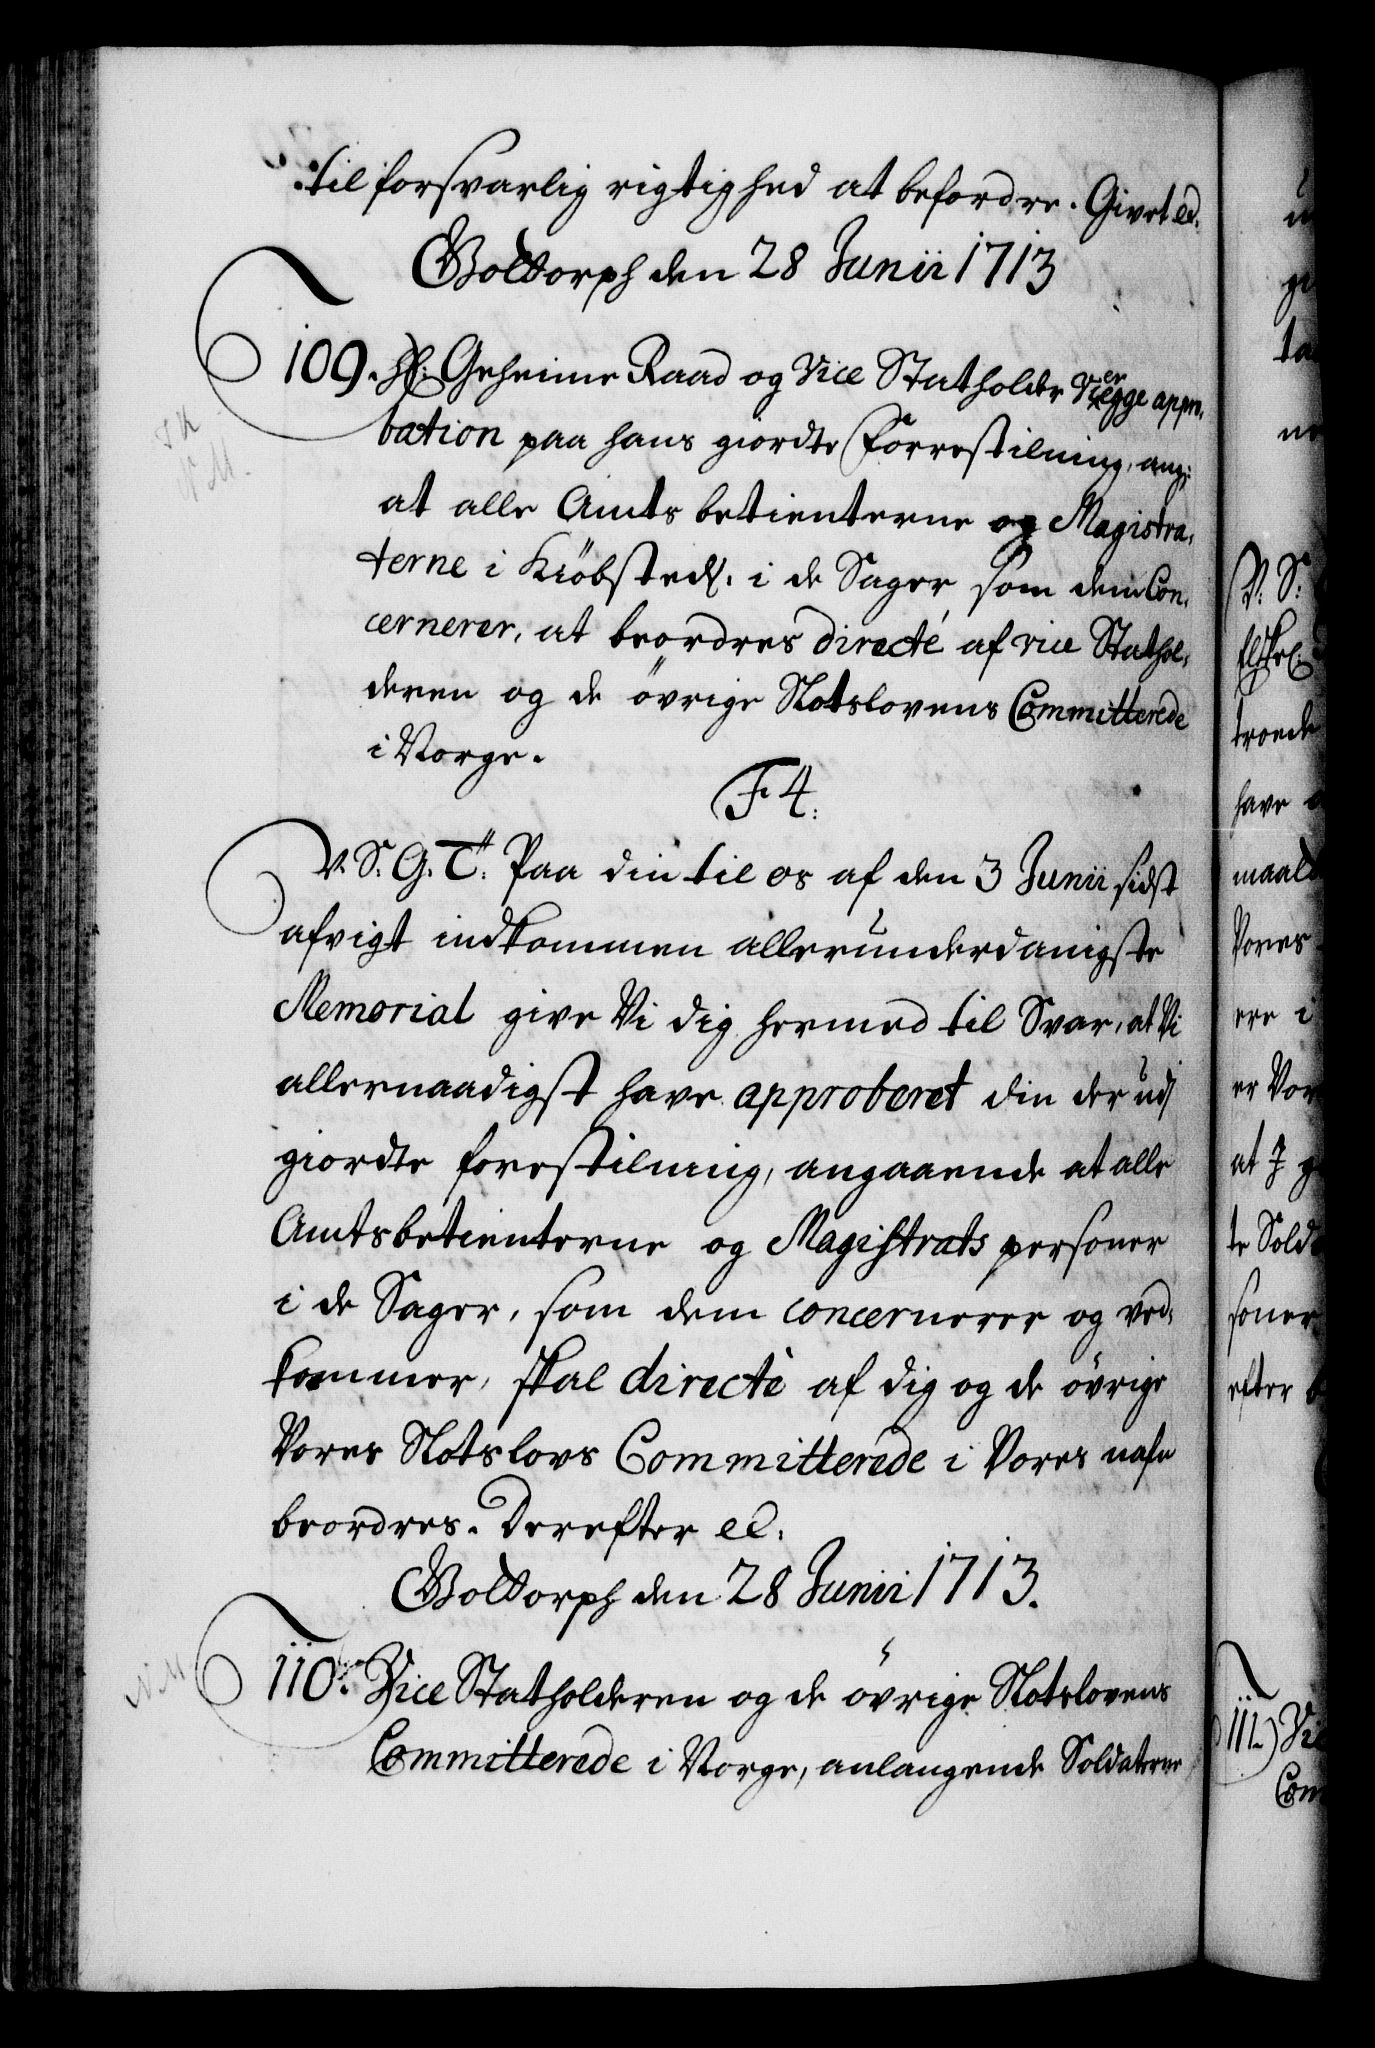 til forsvarlig rigtighed at befordre. Givet etc.
Gottorph den 28 Junii 1713
109. Hr: Geheime Raad og Vice Statholder Vibegge appro-
bation paa hans giordte Forrestilning, ang:
at alle Amts betienterne og Magistra-
terne i Kiöbsted: i de Sager som dem Con-
cernerer, at beordres directé af vice Stathol-
deren og de övrige Slotslovens Committerede
i Norge.
F 4.
V. S. G. T. Paa din til os af den 3 Junii sidst
afvigt indkommen allerunderdanigste
Memorial give Vi dig hermed til Svar, at Vi
allernaadigst have approberet din der udj
giordte forestilning, angaaende at alle
Amtsbetienterne og Magistrats personer
i de Sager, som dem concernerer og ved-
kommer, skal directè af dig og de övrige
Vores Slotslovs Committerede i Vores nafn
beordres. Derefter etc.
Gottorph den 28 Junii 1713.
N M
110. Vice Statholderen og de övrige Slotslovens
Committerede i Norge, anlangende Soldaterne